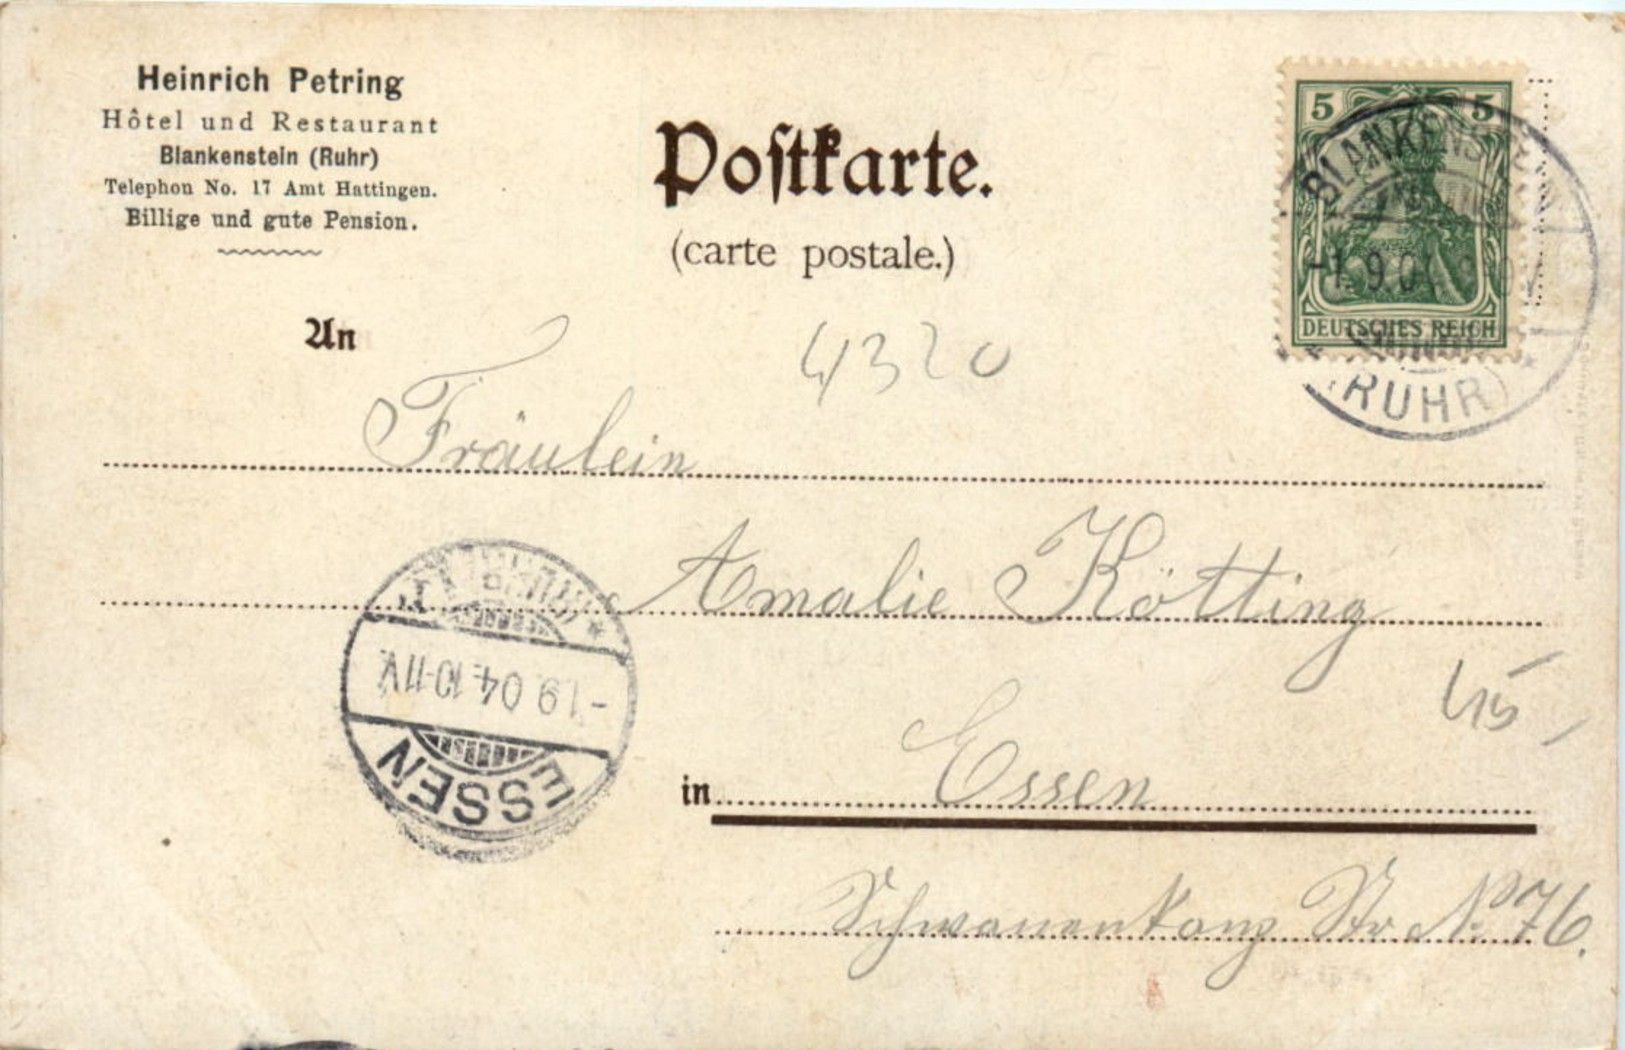 Heinrich Petring
Hôtel und Restaurant
Blankenstein (Ruhr)
Telephon No. 17 Amt Hattingen.
Billige und gute Pension.
Poſtkarte.
(carte postale.)
5 5
DEUTSCHES REICH
BLANKENSTEIN
-1.9.0
(RUHR)
An
4320
Fräulein
Amalie Kötting
-1.9.04.10-11V.
ESSEN
45,-
in Essen
Schwanenkamp Str No 76.